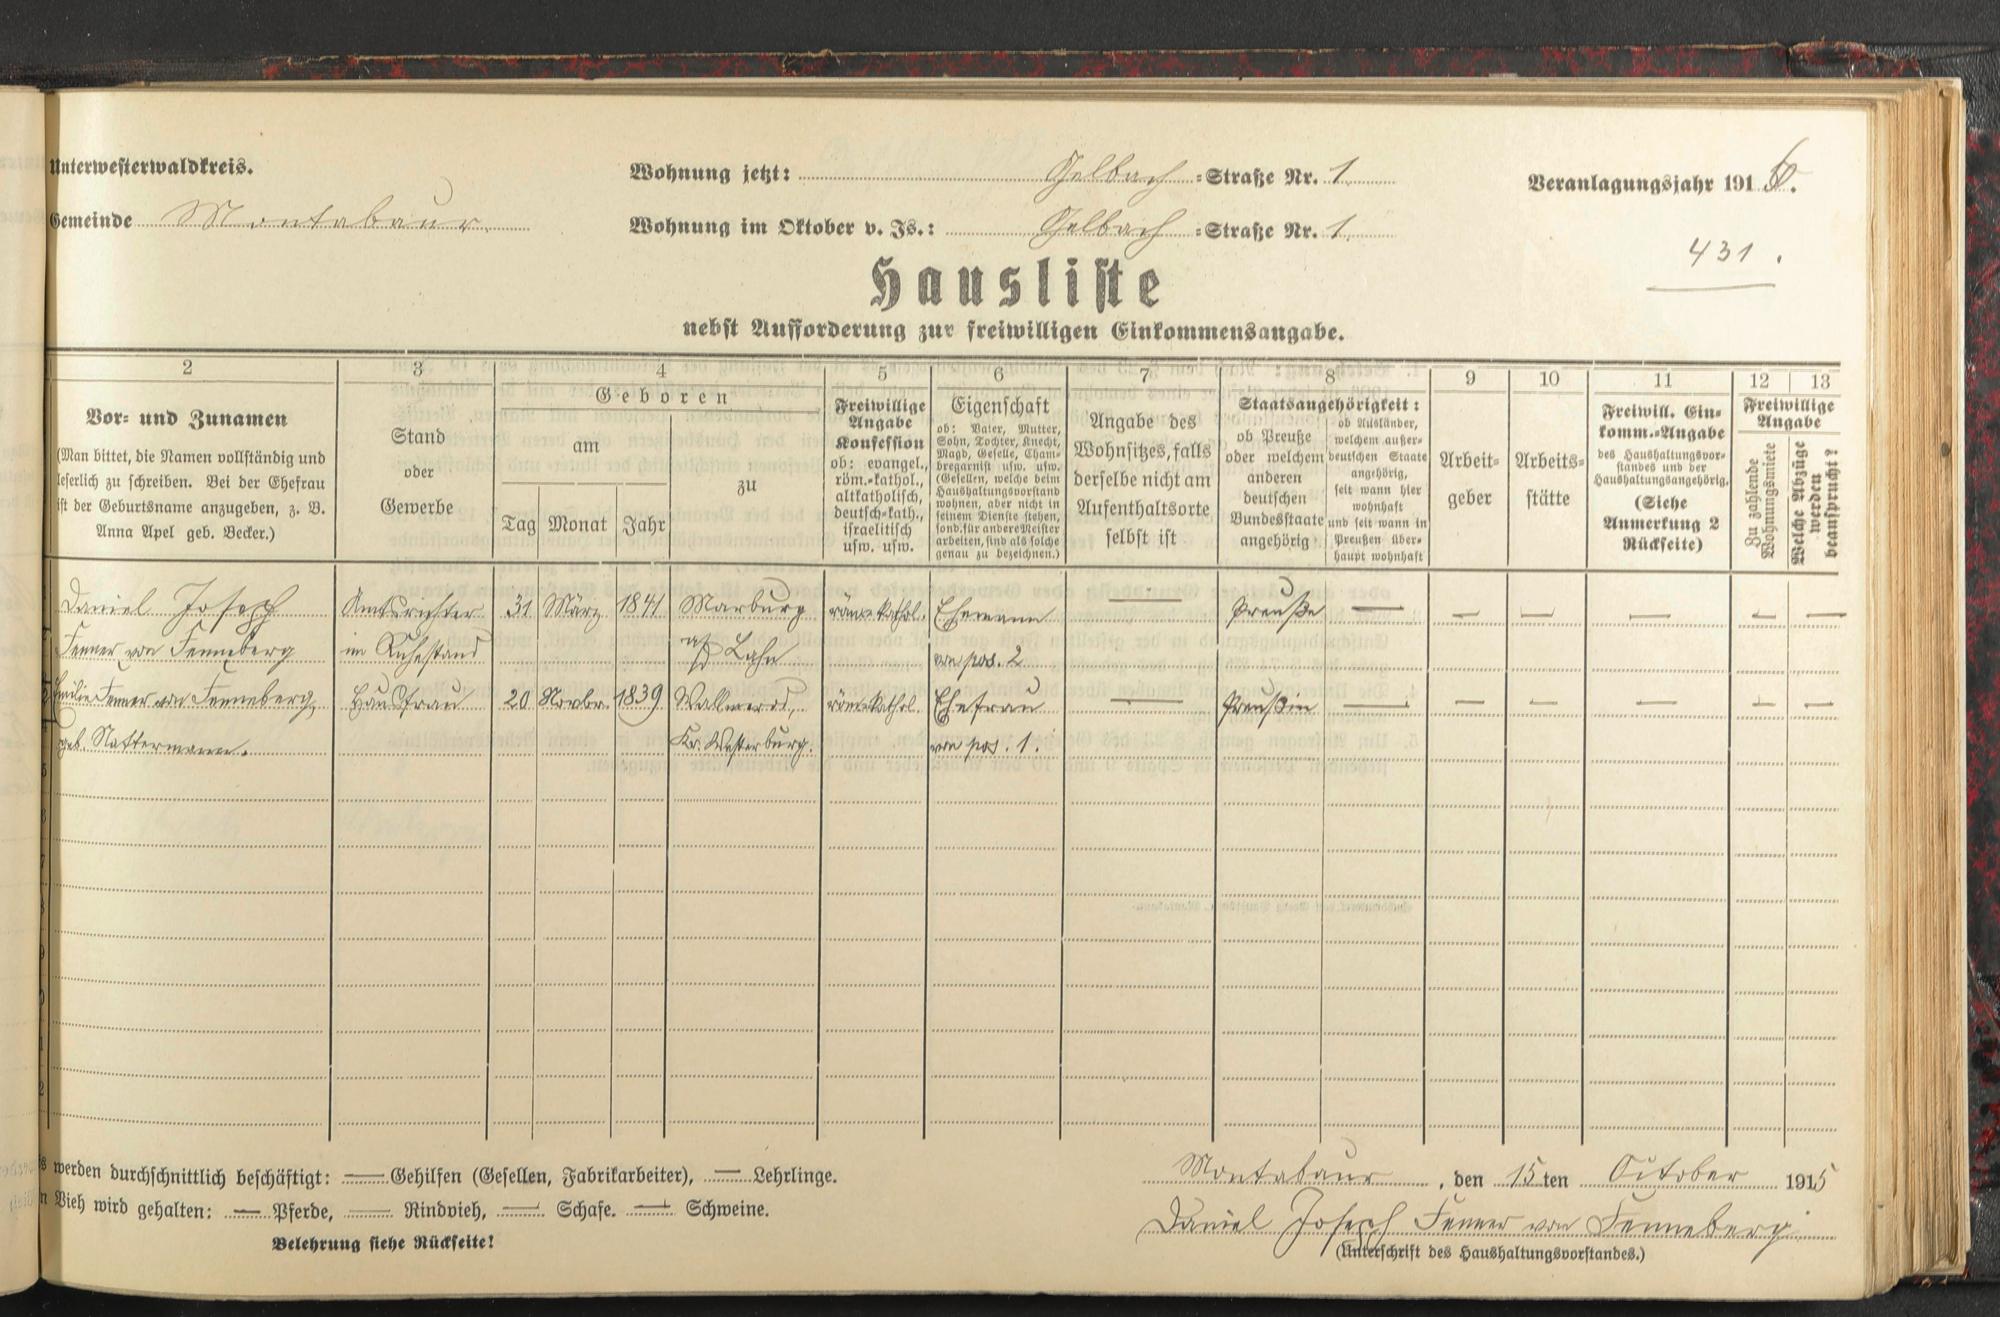 Unterwesterwaldkreis.
Gemeinde Montabaur.
Wohnung jetzt: Gelbach =Straße Nr. 1
Wohnung im Oktober v. Js.: Gelbach =Straße Nr. 1.
Veranlagungsjahr 1916.
431.
Hausliste
nebst Aufforderung zur freiwilligen Einkommensangabe.
2 3 4 5 6 7 8 9 10 11 12 13
Vor= und Zunamen
(Man bittet, die Namen vollständig und
leserlich zu schreiben. Bei der Ehefrau
ist der Geburtsname anzugeben, z. B.
Anna Apel geb. Becker.)
Stand
oder
Gewerbe
Geboren
am
Tag Monat Jahr
zu
Freiwillige
Angabe
Konfession
ob: evangel.,
röm.=kathol.,
altkatholisch,
deutsch=kath.,
israelitisch
usw. usw.
Eigenschaft
ob: Vater, Mutter,
Sohn, Tochter, Knecht,
Magd, Geselle, Cham=
bregarnist usw. usw.
(Gesellen, welche beim
Haushaltungsvorstand
wohnen, aber nicht in
seinem Dienste stehen,
sond. für andere Meister
arbeiten, sind als solche
genau zu bezeichnen.)
Angabe des
Wohnsitzes, falls
derselbe nicht am
Aufenthaltsorte
selbst ist
Staatsangehörigkeit:
ob Preuße
oder welchem
anderen
deutschen
Bundesstaate
angehörig
ob Ausländer,
welchem außer=
deutschen Staate
angehörig,
seit wann hier
wohnhaft
und seit wann in
Preußen über=
haupt wohnhaft
Arbeit=
geber
Arbeits=
stätte
Freiwill. Ein=
komm.=Angabe
des Haushaltungsvor=
standes und der
Haushaltungsangehörig.
(Siehe
Anmerkung 2
Rückseite)
Freiwillige
Angabe
Zu zahlende
Wohnungsmiete
Welche Abzüge
werden
beansprucht?
Daniel Joseph Amtsrichter 31 März 1841 Marburg röm. kathol. Ehemann — Preuße — — — — — —
Fenner von Fenneberg im Ruhestand a/d Lahn von pos. 2
Emilie Fenner von Fenneberg, Hausfrau 20 Novbr. 1839 Wallmerod, röm. kathol. Ehefrau — Preußin — — — — — —
geb. Nattermann. Kr. Westerburg. von pos. 1.
werden durchschnittlich beschäftigt: — Gehilfen (Gesellen, Fabrikarbeiter), — Lehrlinge.
Vieh wird gehalten: — Pferde, — Rindvieh, — Schafe. — Schweine.
Belehrung siehe Rückseite!
Montabaur, den 15ten October 1915
Daniel Joseph Fenner von Fenneberg
(Unterschrift des Haushaltungsvorstandes.)